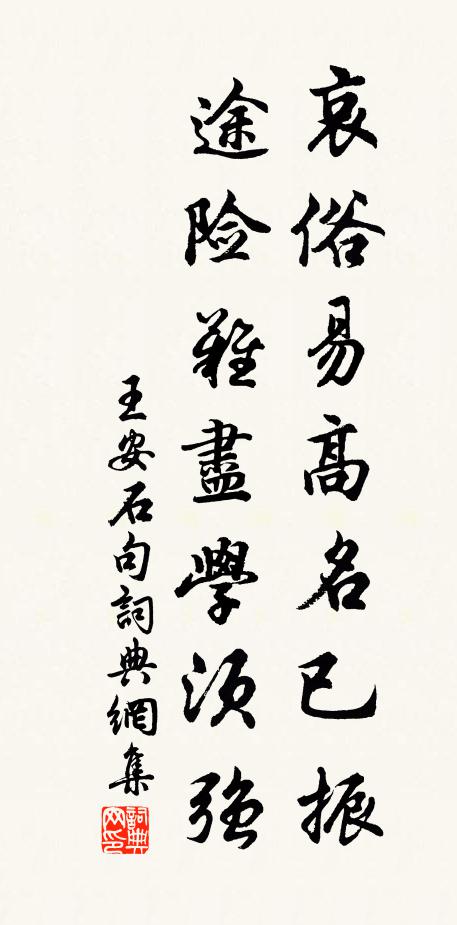 哀俗易高名已振
途险難盡學须强
王安石句詞典網集
詞典
网印